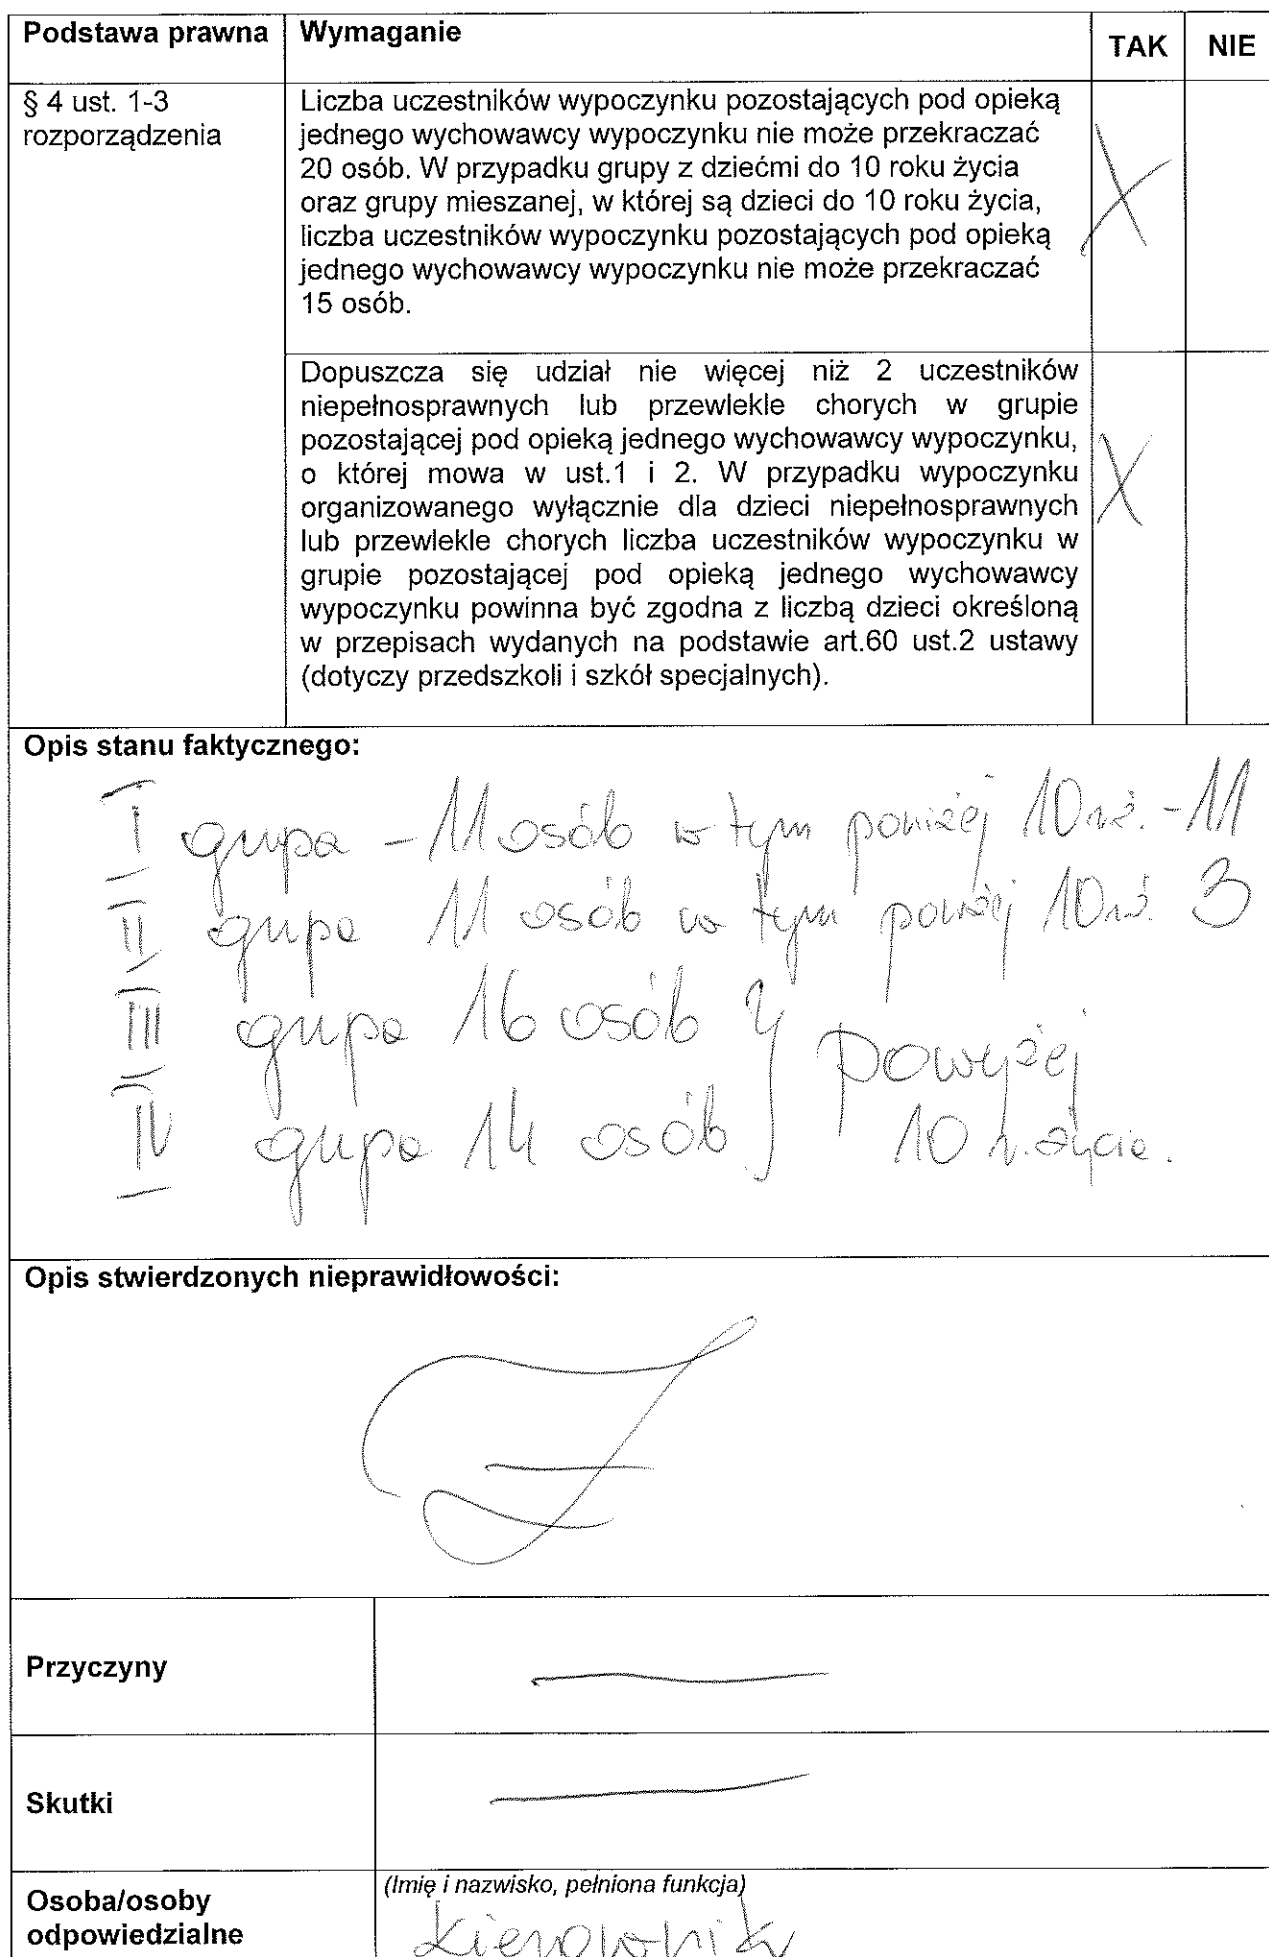 Podstawa prawna Wymaganie TAK NIE
§ 4 ust. 1-3
rozporządzenia
Liczba uczestników wypoczynku pozostających pod opieką
jednego wychowawcy wypoczynku nie może przekraczać
20 osób. W przypadku grupy z dziećmi do 10 roku życia
oraz grupy mieszanej, w której są dzieci do 10 roku życia,
liczba uczestników wypoczynku pozostających pod opieką
jednego wychowawcy wypoczynku nie może przekraczać
15 osób.
X
Dopuszcza się udział nie więcej niż 2 uczestników
niepełnosprawnych lub przewlekle chorych w grupie
pozostającej pod opieką jednego wychowawcy wypoczynku,
o której mowa w ust.1 i 2. W przypadku wypoczynku
organizowanego wyłącznie dla dzieci niepełnosprawnych
lub przewlekle chorych liczba uczestników wypoczynku w
grupie pozostającej pod opieką jednego wychowawcy
wypoczynku powinna być zgodna z liczbą dzieci określoną
w przepisach wydanych na podstawie art.60 ust.2 ustawy
(dotyczy przedszkoli i szkół specjalnych).
X
Opis stanu faktycznego:
I grupa - 11 osób w tym poniżej 10 r.ż. - 11
II grupa 11 osób w tym poniżej 10 r.ż. 3
III grupa 16 osób } powyżej
IV grupa 14 osób } 10 r. życia.
Opis stwierdzonych nieprawidłowości:
Przyczyny
Skutki
Osoba/osoby
odpowiedzialne
(Imię i nazwisko, pełniona funkcja)
Kierownik